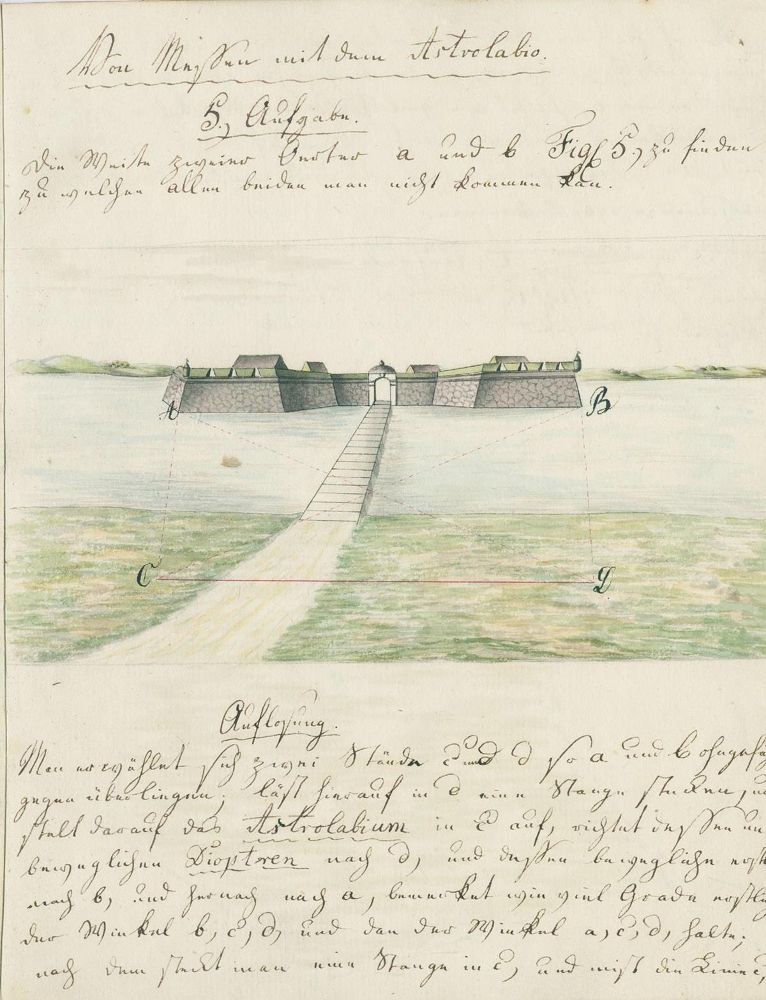 Von Messen mit dem Astrolabio.
5., Aufgabe.
Die Weite zweier Oerter a und b Fig. 5., zu finden
zu welchen allen beiden man nicht kommen kan.
A
B
C
D
Auflosung.
Man erwählet sich zwei Stände c und d so a und b ohngefäh
gegen überliegen; läst hierauf in d eine Stange stecken, un
stelt darauf das Astrolabium in c auf, richtet dessen un
beweglichen Dioptren nach d, und dessen bewegliche erst
nach b, und hernach nach a, bemerket wie viel Grade erstl
der Winkel b, c, d, und dan der Winkel a, c, d, halte;
nach dem steckt man eine Stange in c, und mist die Linie c,